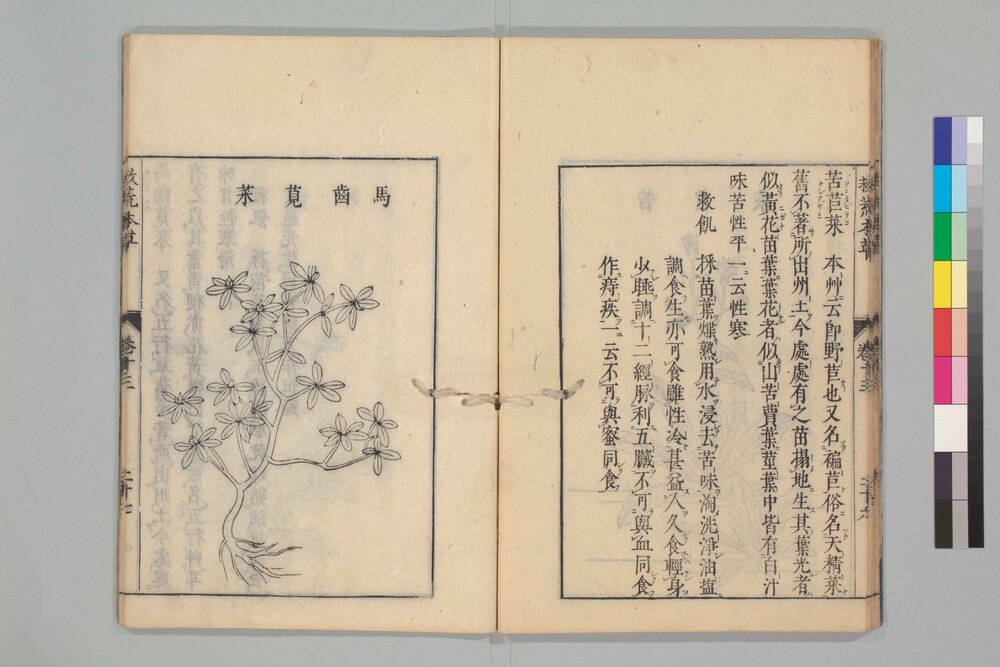 苦苣菜　本艸云即野苣也又名褊苣俗名天精菜
舊不著所出州土今處處有之苗搨地生其葉光者
似黃花苗葉葉花者似山苦蕒葉莖葉中皆有白汁
味苦性平一云性寒
救飢　採苗葉煠熟用水浸去苦味淘洗淨油鹽
調食生亦可食雖性冷甚益人久食輕身
少睡調十二經脉利五臟不可與血同食
作痔疾一云不可與蜜同食
救荒本草
卷十三
馬齒莧菜
救荒本草
卷十三
二十七